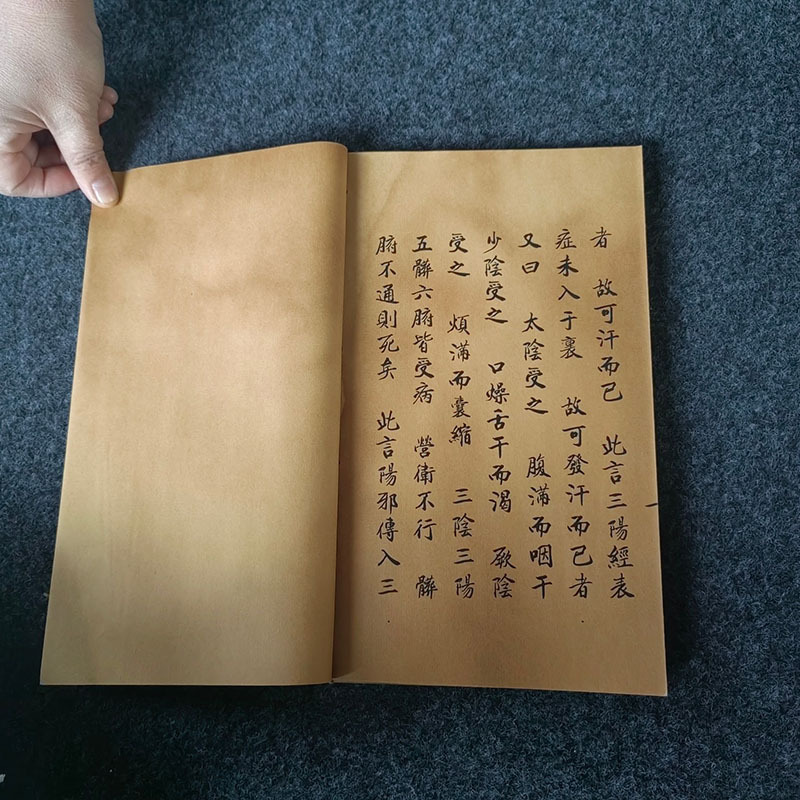 者　故可汗而已　此言三陽經表
症未入于裏　故可發汗而已者
又曰　太陰受之　腹滿而咽干
少陰受之　口燥舌干而渴　厥陰
受之　煩滿而囊縮　三陰三陽
五髒六腑皆受病　營衛不行　髒
腑不通則死矣　此言陽邪傳入三